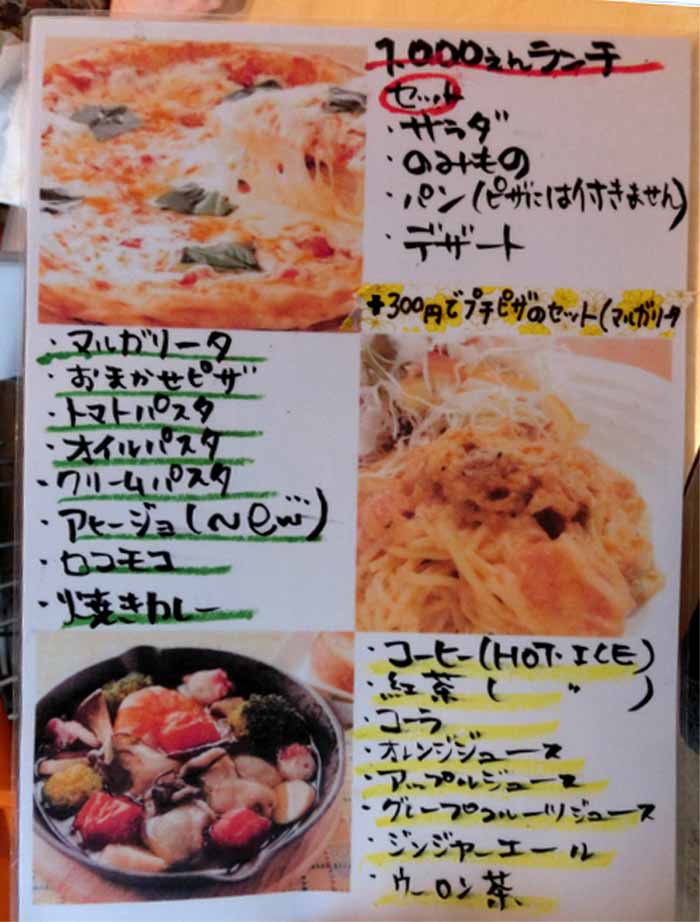 1.000えんランチ
セット
・サラダ
・のみもの
・パン(ピザには付きません)
・デザート
+300円でプチピザのセット(マルガリータ
・マルガリータ
・おまかせピザ
・トマトパスタ
・オイルパスタ
・クリームパスタ
・アヒージョ(New)
・ロコモコ
・焼きカレー
・コーヒー(HOT・ICE)
・紅茶(〃)
・コーラ
・オレンジジュース
・アップルジュース
・グレープフルーツジュース
・ジンジャーエール
・ウーロン茶